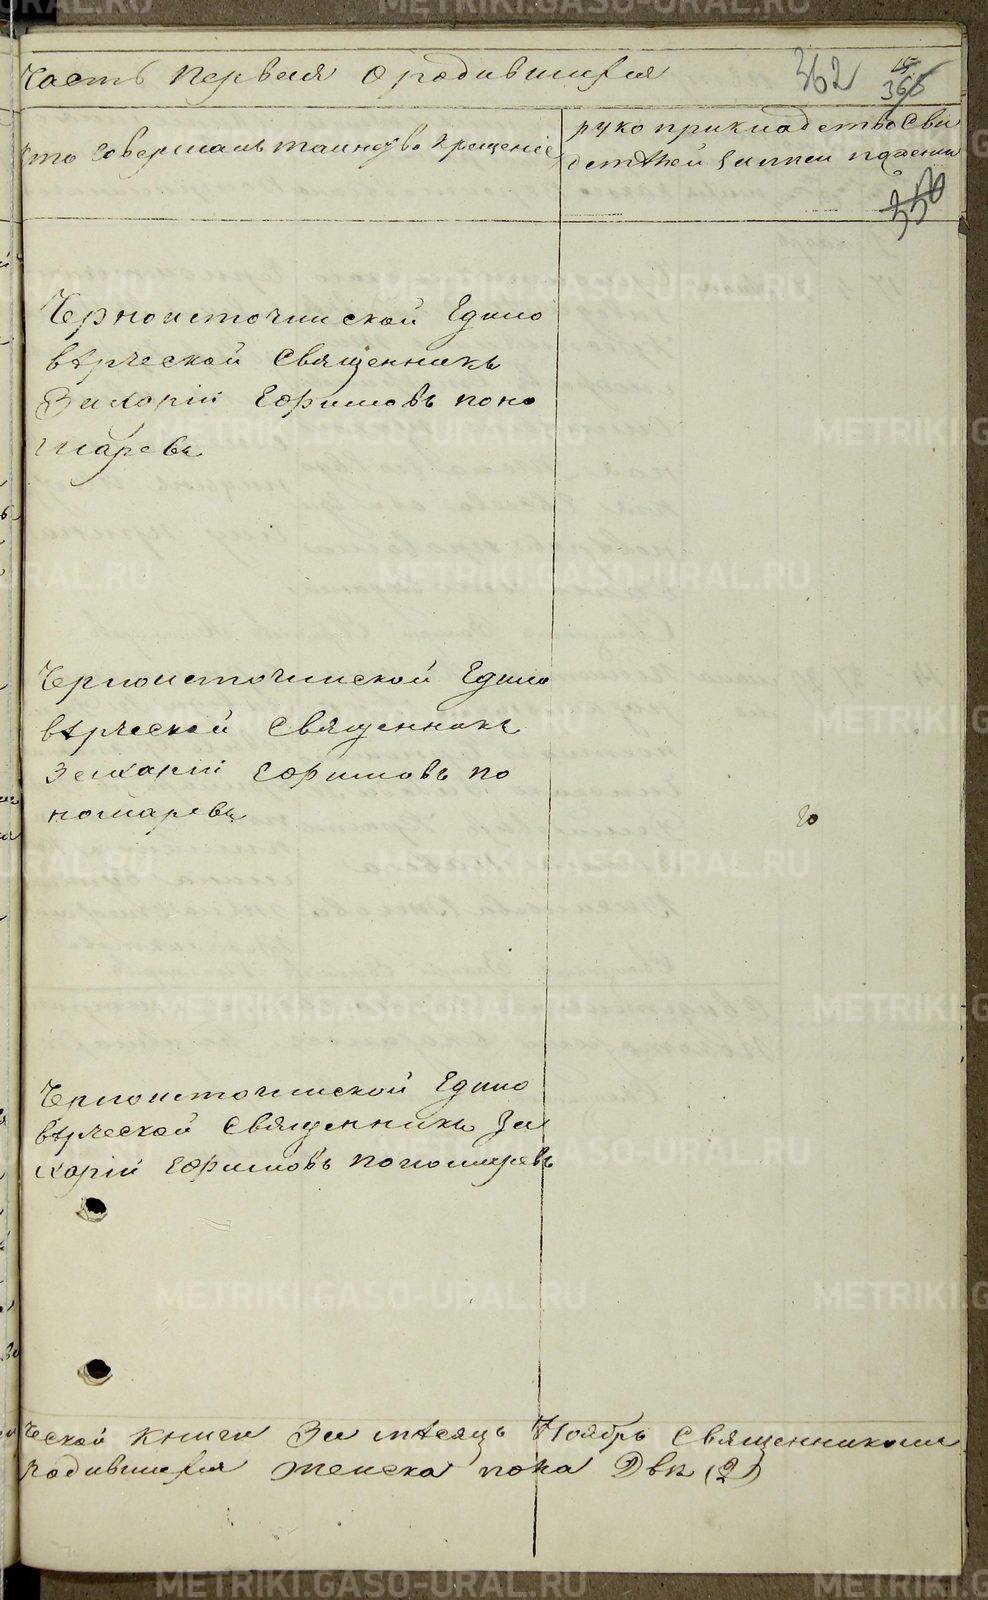 Часть первая о родившихся 362
365
Кто совершалъ таинство крещенiе
рукоприкладство Сви
детѣлей записи по желан
350
Черноисточинской Едино
вѣрческой Священникъ
Захарiй Ефимовъ поно
маревъ
Черноисточинской Едино
вѣрческой Священникъ
Захарiй Ефимовъ по
номаревъ
Черноисточинской Едино
вѣрческой Священникъ За
харiй Ефимовъ пономаревъ
ческой книги За мѣсяцъ Ноябрь Священником
Родившихся женска пола Двѣ (2)
METRIKI.GASO-URAL.RU